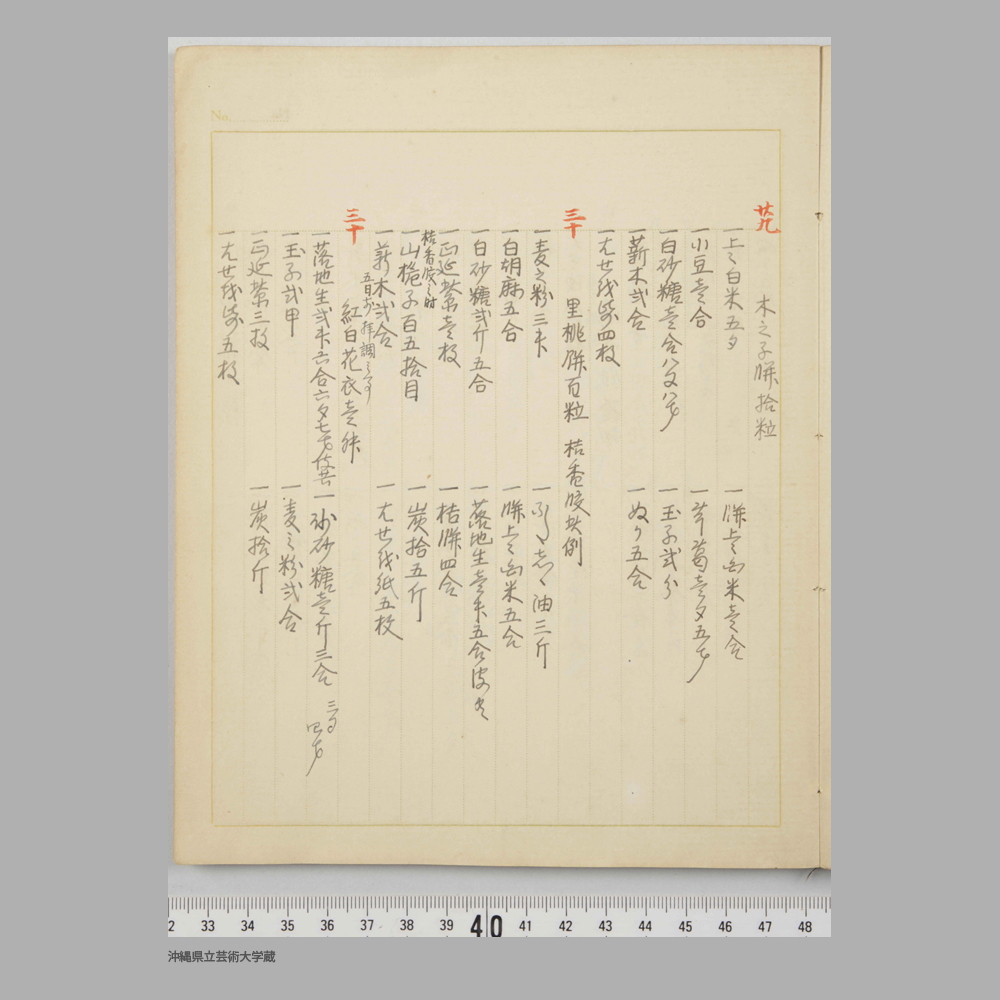 No.
廿九
木之子餅拾粒
一上々白米五夕
一餅上々白米壱合
一小豆壱合
一芋葛壱夕五才
一白砂糖壱合八夕八才
一玉子弐分
一薪木弐合
一ぬり五合
一尤廿我紙四枚
三十
里桃餅百粒 桔香餃共例
一麦之粉三升
一油三斤
一白胡麻五合
一餅上々白米五合
一白砂糖弐斤五合
一落地生壱升五合
一正延紫壱枚
一桔餅四合
桔香餃之時
一山梔子百五拾目
一炭拾五斤
一薪木弐合
一尤廿我紙五枚
三十
紅白花衣壱
一落地生弐升六合六夕七才
一氷砂糖壱斤三合
一玉子弐甲
一麦之粉弐合
一正延紫三枚
一炭拾斤
一尤廿我紙五枚
32 33 34 35 36 37 38 39 40 41 42 43 44 45 46 47 48
沖縄県立芸術大学蔵